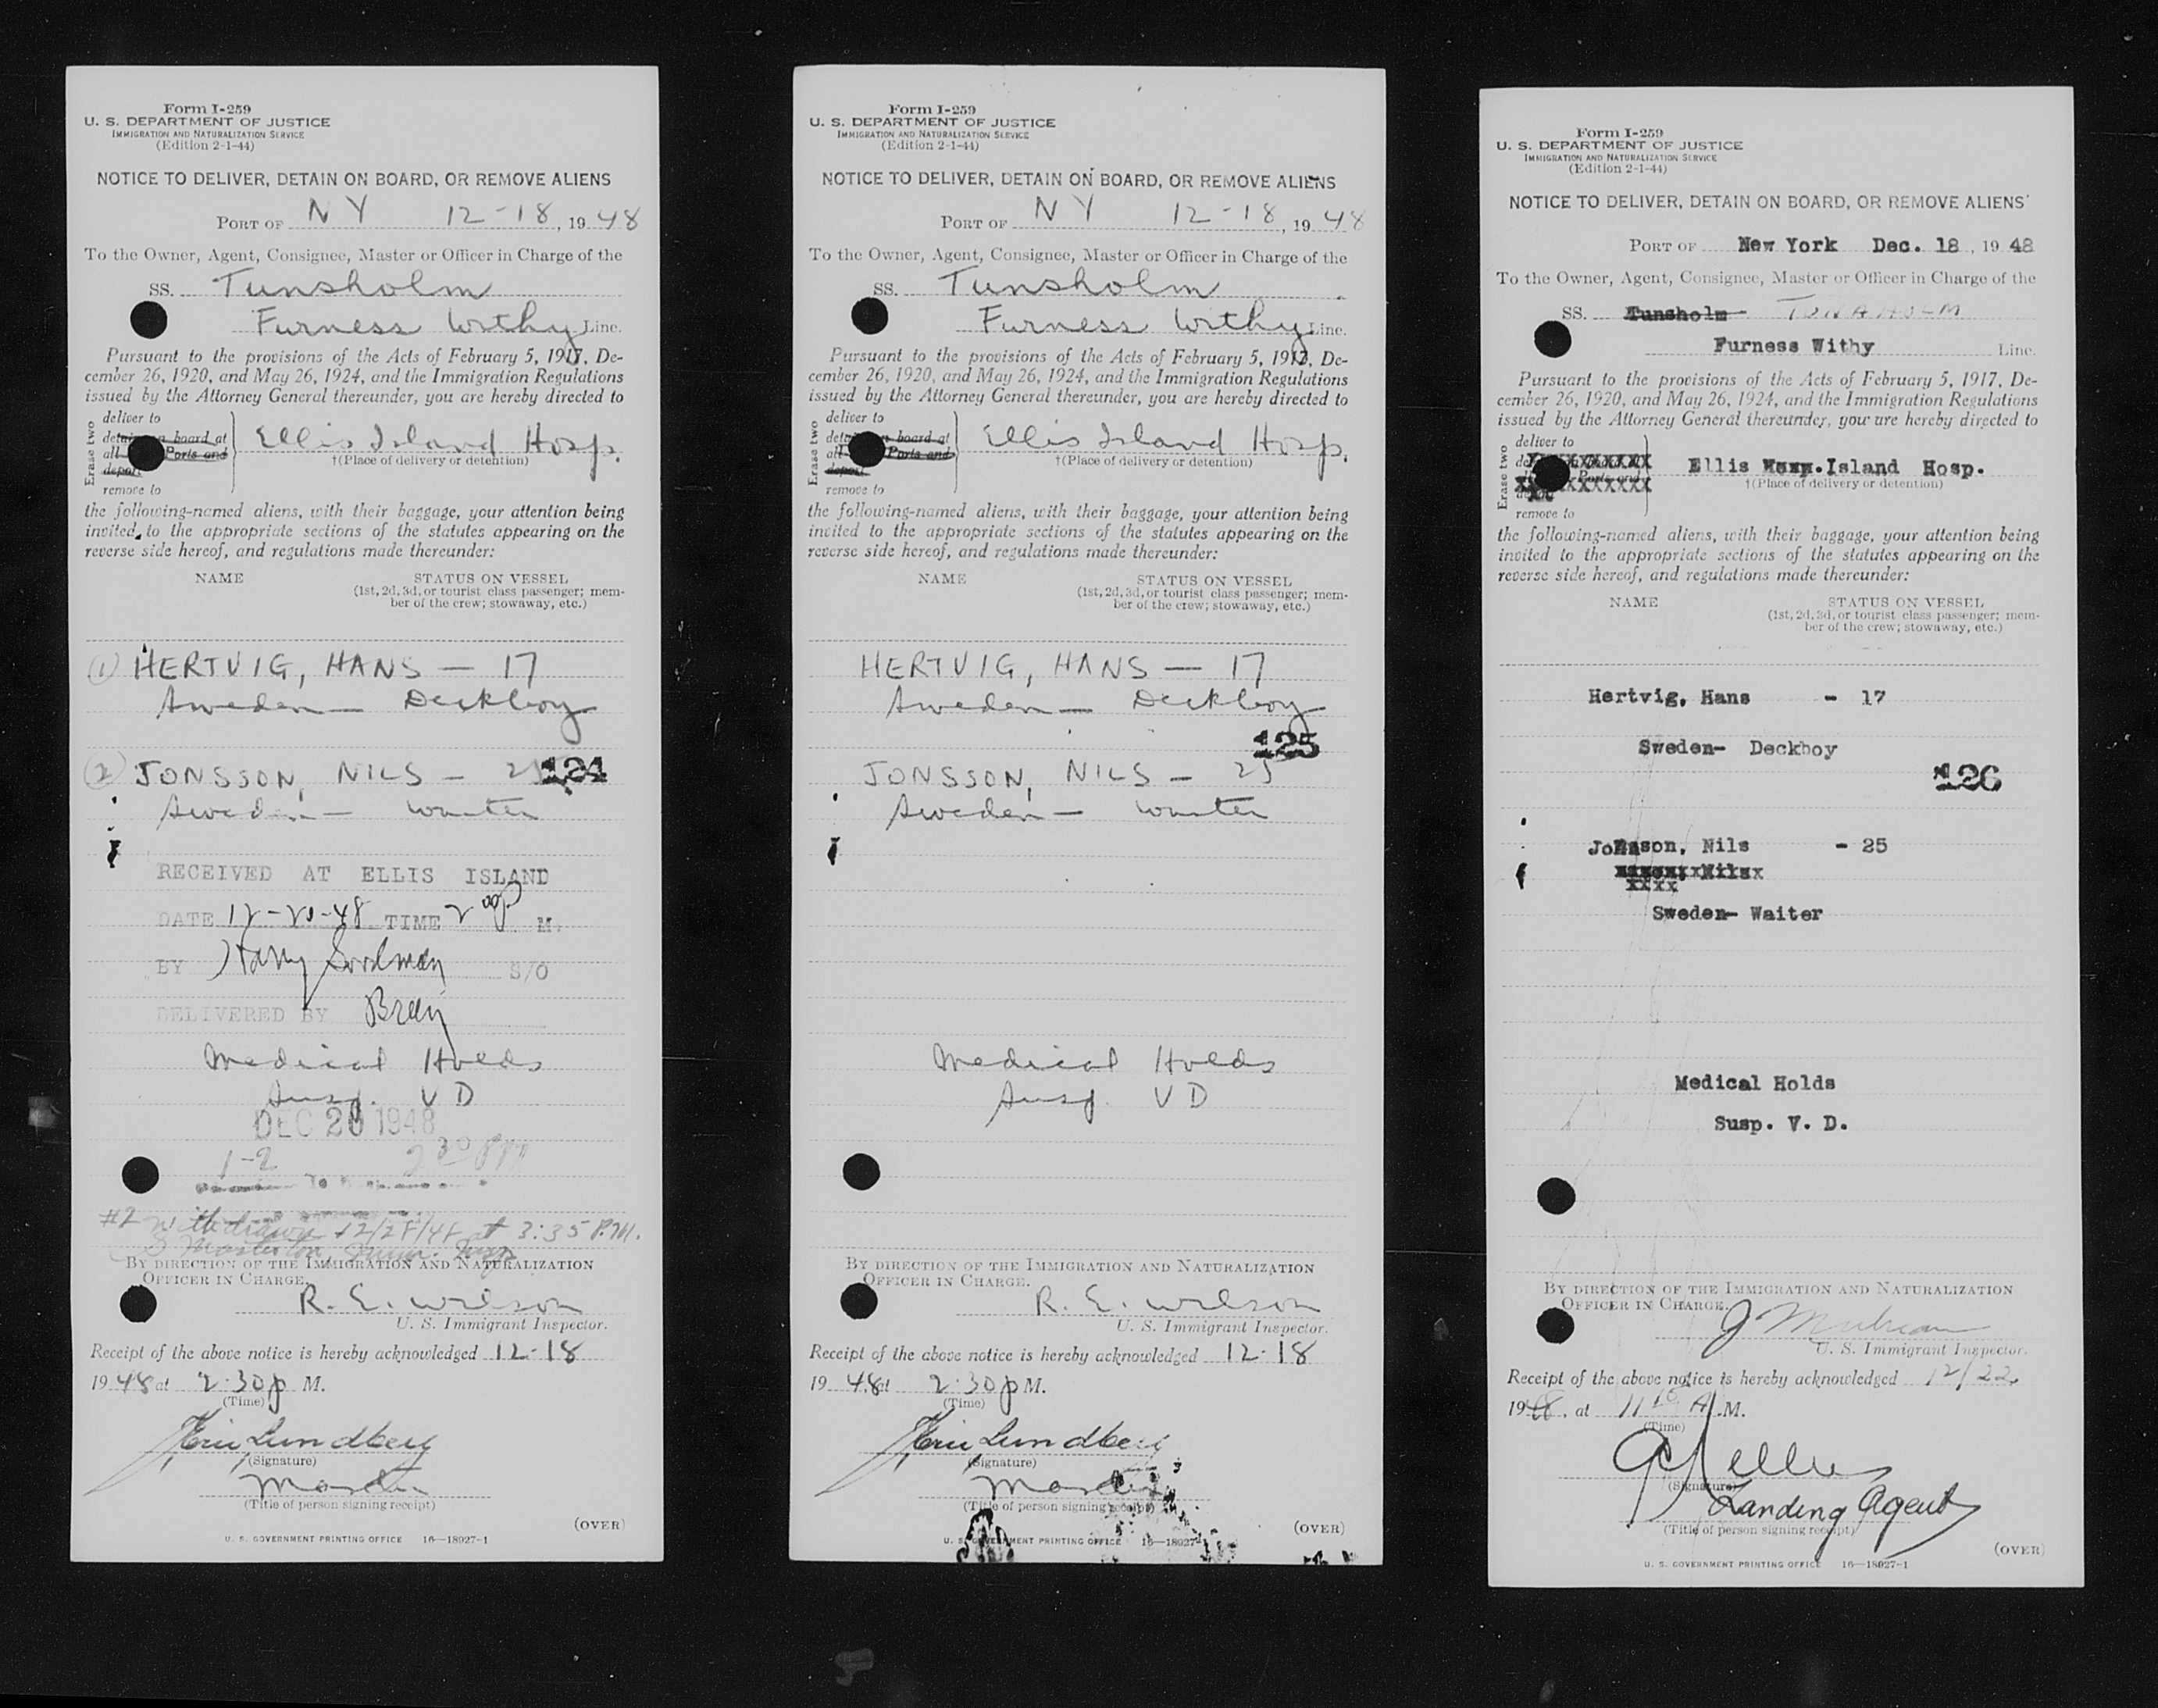 Form I-259
U. S. DEPARTMENT OF JUSTICE
IMMIGRATION AND NATURALIZATION SERVICE
(Edition 2-1-44)
NOTICE TO DELIVER, DETAIN ON BOARD, OR REMOVE ALIENS
PORT OF NY 12-18, 1948
To the Owner, Agent, Consignee, Master or Officer in Charge of the
SS. Tunsholm
Furness Withy Line.
Pursuant to the provisions of the Acts of February 5, 1917, De-
cember 26, 1920, and May 26, 1924, and the Immigration Regulations
issued by the Attorney General thereunder, you are hereby directed to
Erase two
deliver to
detain on board at
all Ports and
deport
remove to
Ellis Island Hosp.
†(Place of delivery or detention)
the following-named aliens, with their baggage, your attention being
invited to the appropriate sections of the statutes appearing on the
reverse side hereof, and regulations made thereunder:
NAME STATUS ON VESSEL
(1st, 2d, 3d, or tourist class passenger; mem-
ber of the crew; stowaway, etc.)
(1) HERTVIG, HANS — 17
Sweden — Deckboy
(2) JONSSON, NILS — 25 124
Sweden — Waiter
RECEIVED AT ELLIS ISLAND
DATE 12-20-48 TIME 2 00 P M.
BY Harry Goodman S/O
DELIVERED BY
Medical Holds
Susp. V D
DEC 20 1948
1-2 2 30 PM
#2 Withdrawn 12/28/48 at 3:35 P.M.
Masterton, Immr. Insp.
BY DIRECTION OF THE IMMIGRATION AND NATURALIZATION
OFFICER IN CHARGE.
R. E. Wilson
U. S. Immigrant Inspector.
Receipt of the above notice is hereby acknowledged 12-18
1948 at 2:30 p M.
(Time)
Lundberg
(Signature)
Master
(Title of person signing receipt)
(OVER)
U. S. GOVERNMENT PRINTING OFFICE 16—18927-1
Form I-259
U. S. DEPARTMENT OF JUSTICE
IMMIGRATION AND NATURALIZATION SERVICE
(Edition 2-1-44)
NOTICE TO DELIVER, DETAIN ON BOARD, OR REMOVE ALIENS
PORT OF NY 12-18, 1948
To the Owner, Agent, Consignee, Master or Officer in Charge of the
SS. Tunsholm
Furness Withy Line.
Pursuant to the provisions of the Acts of February 5, 1917, De-
cember 26, 1920, and May 26, 1924, and the Immigration Regulations
issued by the Attorney General thereunder, you are hereby directed to
Erase two
deliver to
detain on board at
all Ports and
deport
remove to
Ellis Island Hosp.
†(Place of delivery or detention)
the following-named aliens, with their baggage, your attention being
invited to the appropriate sections of the statutes appearing on the
reverse side hereof, and regulations made thereunder:
NAME STATUS ON VESSEL
(1st, 2d, 3d, or tourist class passenger; mem-
ber of the crew; stowaway, etc.)
HERTVIG, HANS — 17
Sweden — Deckboy
125
JONSSON, NILS — 25
Sweden — Waiter
Medical Holds
Susp. V D
BY DIRECTION OF THE IMMIGRATION AND NATURALIZATION
OFFICER IN CHARGE.
R. E. Wilson
U. S. Immigrant Inspector.
Receipt of the above notice is hereby acknowledged 12-18
1948 at 2:30 p M.
(Time)
Lundberg
(Signature)
Master
(Title of person signing receipt)
(OVER)
U. S. GOVERNMENT PRINTING OFFICE 16—18927-1
Form I-259
U. S. DEPARTMENT OF JUSTICE
IMMIGRATION AND NATURALIZATION SERVICE
(Edition 2-1-44)
NOTICE TO DELIVER, DETAIN ON BOARD, OR REMOVE ALIENS
PORT OF New York Dec. 18, 1948
To the Owner, Agent, Consignee, Master or Officer in Charge of the
SS. Tunsholm TUNAHOLM
Furness Withy Line.
Pursuant to the provisions of the Acts of February 5, 1917, De-
cember 26, 1920, and May 26, 1924, and the Immigration Regulations
issued by the Attorney General thereunder, you are hereby directed to
Erase two
deliver to
remove to
Ellis Island Hosp.
†(Place of delivery or detention)
the following-named aliens, with their baggage, your attention being
invited to the appropriate sections of the statutes appearing on the
reverse side hereof, and regulations made thereunder:
NAME STATUS ON VESSEL
(1st, 2d, 3d, or tourist class passenger; mem-
ber of the crew; stowaway, etc.)
Hertvig, Hans - 17
Sweden- Deckboy
126
Jonsson, Nils - 25
Sweden- Waiter
Medical Holds
Susp. V. D.
BY DIRECTION OF THE IMMIGRATION AND NATURALIZATION
OFFICER IN CHARGE.
U. S. Immigrant Inspector.
Receipt of the above notice is hereby acknowledged 12/22
1948, at 11 15 A M.
(Time)
(Signature)
Landing Agent
(Title of person signing receipt)
(OVER)
U. S. GOVERNMENT PRINTING OFFICE 16—18927-1